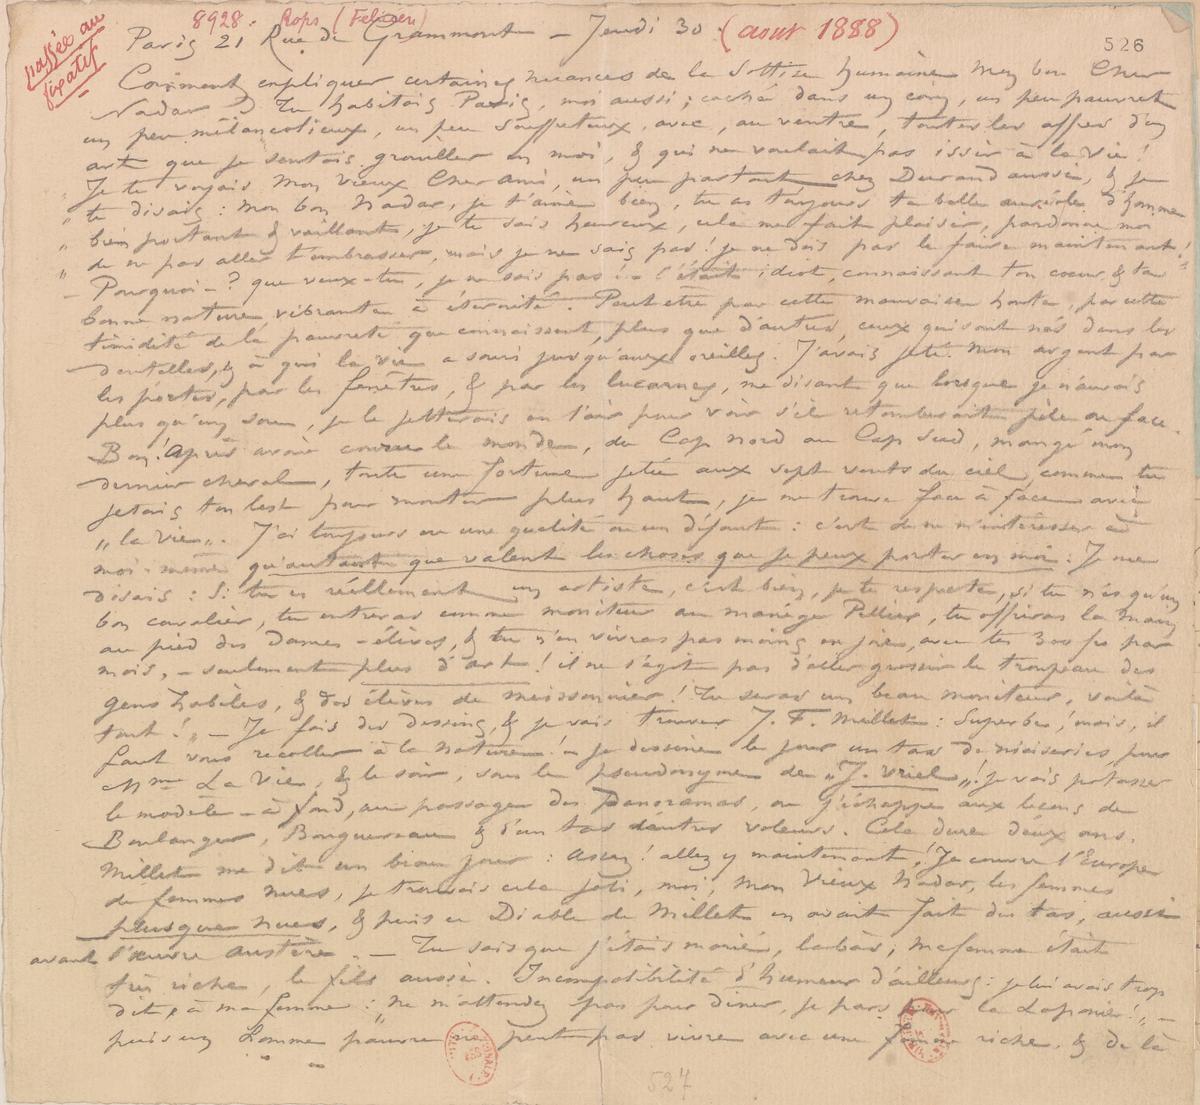 passée au fixatif
8928. Rops (Félicien)
526
Paris 21 Rue de Grammont – Jeudi 30 (aout 1888)
Comment expliquer certaines nuances de la Sottise humaine Mon bon Cher
Nadar ? Tu habitais Paris, moi aussi ; caché dans un coin, un peu pauvret
un peu mélancolieux, un peu souffreteux, avec, au ventre, toutes les affres d'un
art que je sentais grouiller en moi, & qui ne voulait pas issir à la vie !
Je te voyais Mon Vieux Cher Ami, un peu partout chez Durand aussi, & je
te disais : Mon bon Nadar, je t'aime bien, tu as toujours ta belle auréole d'homme
bien portant & vaillant, je te sais heureux, cela me fait plaisir, pardonne moi
de ne pas aller t'embrasser, mais je ne sais pas ! je ne dois pas le faire maintenant !
– Pourquoi – ? que veux-tu, je ne sais pas ! – c'était idiot, connaissant ton coeur, & ta
bonne nature, vibrante à éternité. Peut être par cette mauvaise honte, par cette
timidité de la pauvreté que connaissent, plus que d'autres, ceux qui sont nés dans les
dentelles, & à qui la vie a souri jusqu'aux oreilles. J'avais jeté mon argent par
les portes, par les fenêtres, & par les lucarnes, me disant que lorsque je n'aurais
plus qu'un sou, je le jetterais en l'air pour voir s'il retomberait pile ou face.
Bon ! Après avoir couru le monde, du Cap Nord au Cap Sud, mangé mon
dernier cheval, toute une fortune jetée aux sept vents du ciel comme tu
jetais ton lest pour monter plus haut, je me trouve face à face avec
„la vie". J'ai toujours eu une qualité ou un défaut : c'est de ne m'intéresser à
moi-même qu'autant que valent les choses que je peux porter en moi : Je me
disais : Si tu es réellement un artiste, c'est bien, je te respecte, si tu n'es qu'un
bon cavalier, tu entreras comme moniteur au manège Pellier, tu offriras la main
au pied des Dames-élèves, & tu n'en vivras pas moins en joie, avec tes 300 frs par
mois, – seulement plus d'art ! il ne s'agit pas d'aller grossir le troupeau des
gens habiles, & des élèves de Meissonnier ! Tu seras un beau moniteur, voilà
tout ! „ – Je fais des dessins, & je vais trouver J. F. Millet : Superbe ! mais, il
faut vous recoller à la nature ! – je dessine le jour un tas de niaiseries pour
Mme La Vie, & le soir, sous le pseudonyme de „J. Uriel" ! je vais potasser
le modèle – à fond, au passage des Panoramas, où j'échappe aux leçons de
Boulanger, Bouguereau & d'un tas d'autres voleurs. Cela dure deux ans.
Millet me dit un beau jour : Assez ! allez y maintenant ! Je couvre l'Europe
de femmes nues, je trouvais cela joli, moi, mon Vieux Nadar, les femmes
plusque nues, & puis ce Diable de Millet en avait fait des tas, aussi
avant l'œuvre austère. – Tu sais que j'étais marié, là-bas ; ma femme était
très riche, le fils aussi. Incompatibilité d'humeur d'ailleurs : je lui avais trop
dit, à ma femme : „ne m'attendez pas pour diner, je pars pour la Laponie ! „ –
puis un homme pauvre ne peut pas vivre avec une femme riche. & de là
527